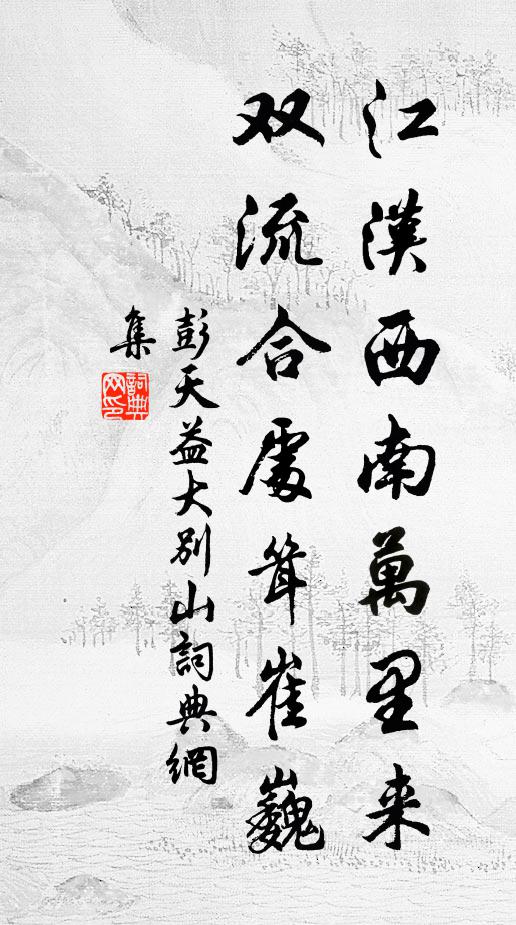 江漢西南萬里来
双流合處耸崔巍
彭天益大别山詞典網
集
詞典网印